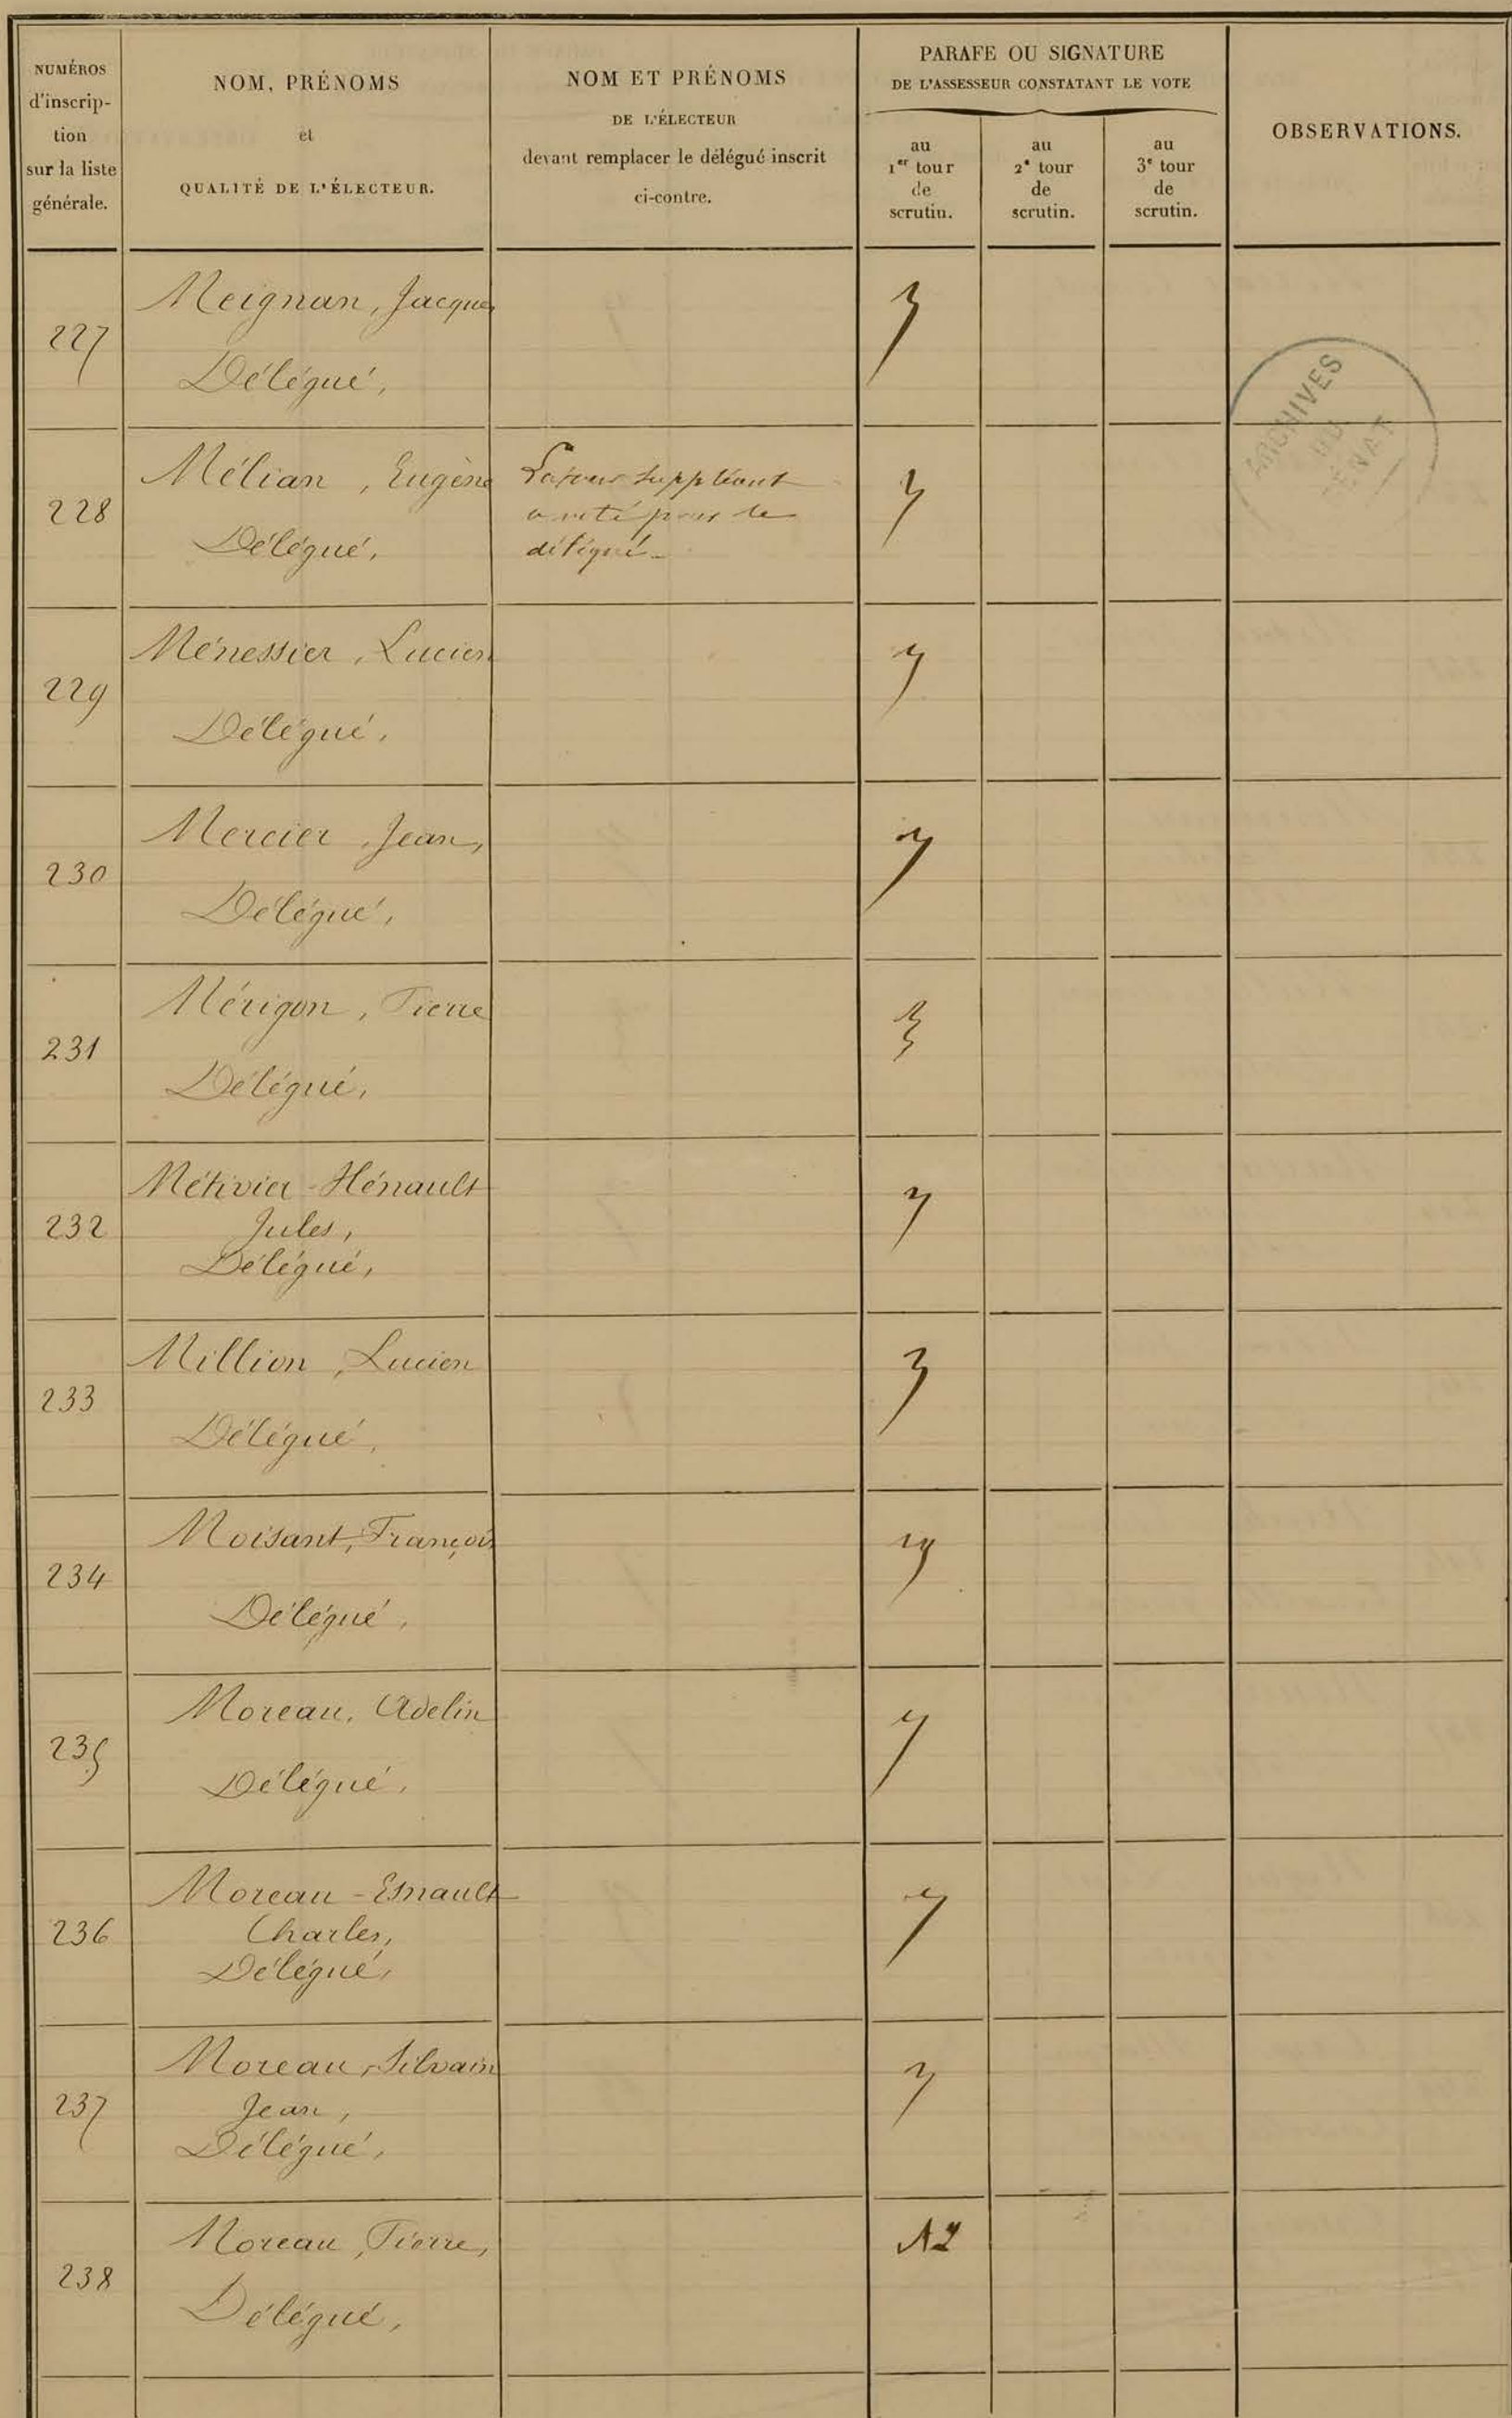 NUMÉROS
d'inscrip-
tion
sur la liste
générale.
NOM, PRÉNOMS
et
QUALITÉ DE L'ÉLECTEUR.
NOM ET PRÉNOMS
DE L'ÉLECTEUR
devant remplacer le délégué inscrit
ci-contre.
PARAFE OU SIGNATURE
DE L'ASSESSEUR CONSTATANT LE VOTE
au
1er tour
de
scrutin.
au
2e tour
de
scrutin.
au
3e tour
de
scrutin.
OBSERVATIONS.
227
Meignan, Jacques
Délégué,
ARCHIVES
DU
SÉNAT
228
Mélian, Eugène
Délégué,
suppléant
a voté pour le
délégué
229
Ménessier, Lucien
Délégué,
230
Mercier, Jean,
Délégué,
231
Mérigon, Pierre
Délégué,
232
Métivier-Hénault
Jules,
Délégué,
233
Million, Lucien
Délégué,
234
Moisant, François
Délégué,
235
Moreau, Adelin
Délégué,
236
Moreau-Esnault
Charles,
Délégué,
237
Moreau, Silvain
Jean,
Délégué,
238
Moreau, Pierre,
Délégué,